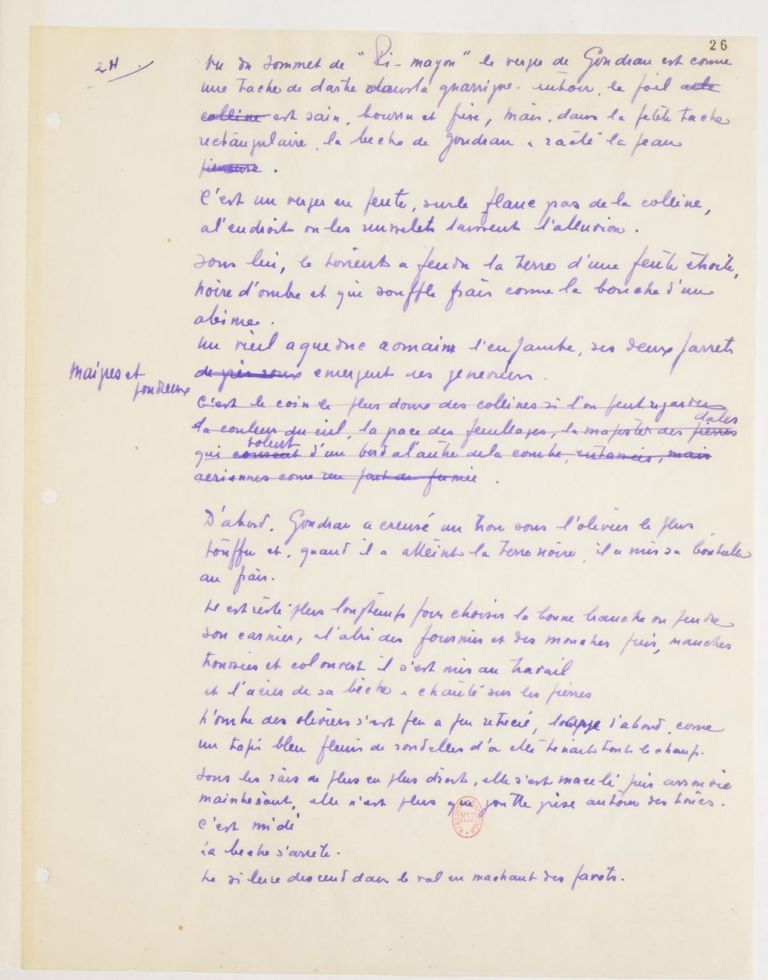 26
24
Vu du sommet de "Pi-mayon" le verger de Gondran est comme
une tache de dartre dans la guarrigue. autour, le poil
colline est sain, bourru et frise, mais, dans la petite tache
rectangulaire, la beche de Gondran a raclé la peau
C'est un verger en pente, sur le flanc pas de la colline,
a l'endroit ou les ruisselets laissent l'alluvion.
sous lui, le torrent a fendu la terre d'une fente étroite,
noire d'ombre et qui souffle frais comme la bouche d'un
abime.
un vieil aqueduc romain l'enjambe, ses deux jarrets
maigres et
poudreux
emergent des genevriers.
C'est le coin le plus doux des collines si l'on peut regarder
la couleur du ciel, la grace des feuillages, la majesté des pierres
dalles
sautent
qui d'un bord a l'autre de la combe, mais
aeriennes come un pont de fumée.
D'abord, Gondran a creusé un trou sous l'olivier le plus
touffu et, quand il a atteint la terre noire, il a mis sa bouteille
au frais.
Il est resté plus longtemps pour choisir la bonne branche ou pendre
son carnier, a l'abri des fourmis et des mouches puis, manches
troussées et col ouvert il s'est mis au travail
et l'acier de sa bêche a chanté sur les pierres
L'ombre des oliviers s'est peu a peu retrecie, large d'abord, come
un tapis bleu fleuri de rondelles d'or elle tenait tout le champ.
sous les rais de plus en plus droits, elle s'est morcelée puis arrondie
maintenant, elle n'est plus que goutte grise autour des troncs.
C'est midi
La beche s'arrete.
Le silence descend dans le val en machant des pavots.